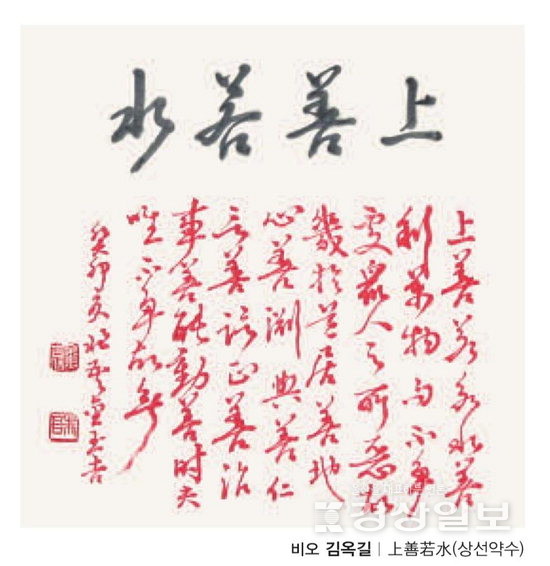 上善若水
上善若水水善
利萬物而不爭
處衆人之所惡故
幾於道居善地
心善淵與善仁
言善 正善治
事善能動善時夫
唯不爭故無
癸卯夏 金玉吉
경상일보
비오 김옥길 | 上善若水(상선약수)